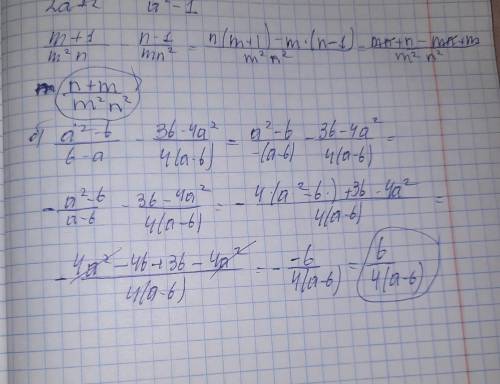 2a+2 a²-1
(m+1)/(m²n) - (n-1)/(mn²) = (n(m+1)-m·(n-1))/(m²n²) = (mn+n-mn+m)/(m²n²)
(n+m)/(m²n²)
б) (a²-b)/(b-a) - (3b-4a²)/(4(a-b)) = (a²-b)/(-(a-b)) - (3b-4a²)/(4(a-b)) =
-(a²-b)/(a-b) - (3b-4a²)/(4(a-b)) = -(4·(a²-b·)+3b-4a²)/(4(a-b)) =
-(4a²-4b+3b-4a²)/(4(a-b)) = -(-b)/(4(a-b)) = b/(4(a-b))